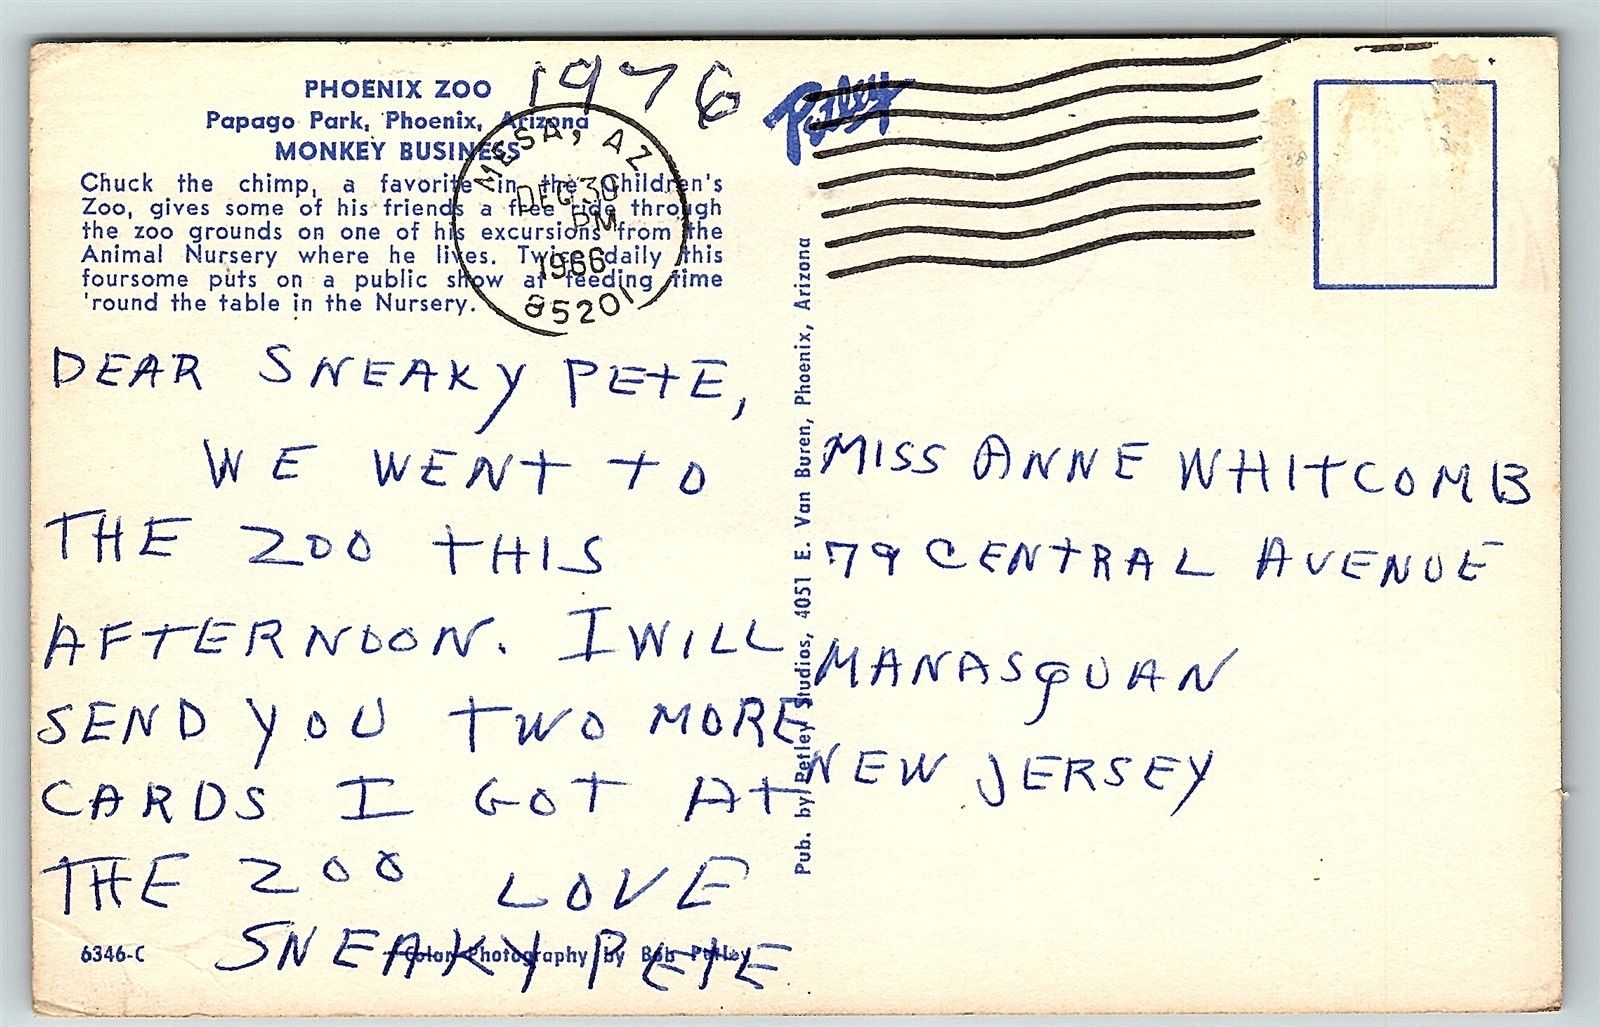 PHOENIX ZOO
Papago Park, Phoenix, Arizona
MONKEY BUSINESS
Chuck the chimp, a favorite in the Children's
Zoo, gives some of his friends a free ride through
the zoo grounds on one of his excursions from the
Animal Nursery where he lives. Twice daily this
foursome puts on a public show at feeding time
'round the table in the Nursery.
1976
MESA, AZ
DEC 30
PM
1966
85201
Petley
DEAR SNEAKY PETE,
WE WENT TO
THE ZOO THIS
AFTERNOON. I WILL
SEND YOU TWO MORE
CARDS I GOT AT
THE ZOO LOVE
SNEAKY PETE
6346-C
Color Photography by Bob Petley
Pub. by Petley Studios, 4051 E. Van Buren, Phoenix, Arizona
MISS ANNE WHITCOMB
79 CENTRAL AVENUE
MANASQUAN
NEW JERSEY